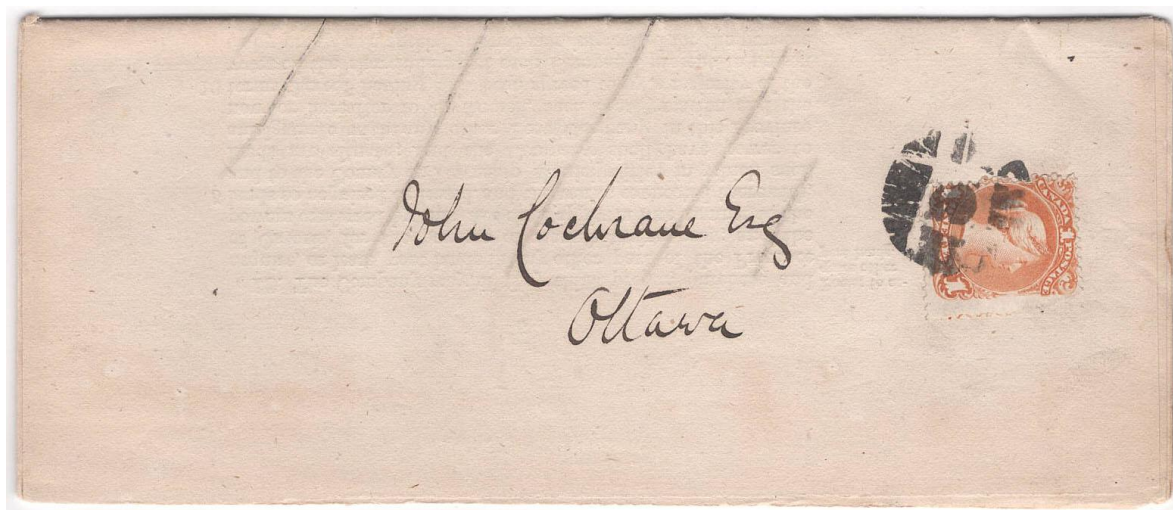 John Cochrane Esq
Ottawa
CANADA POSTAGE
1
1